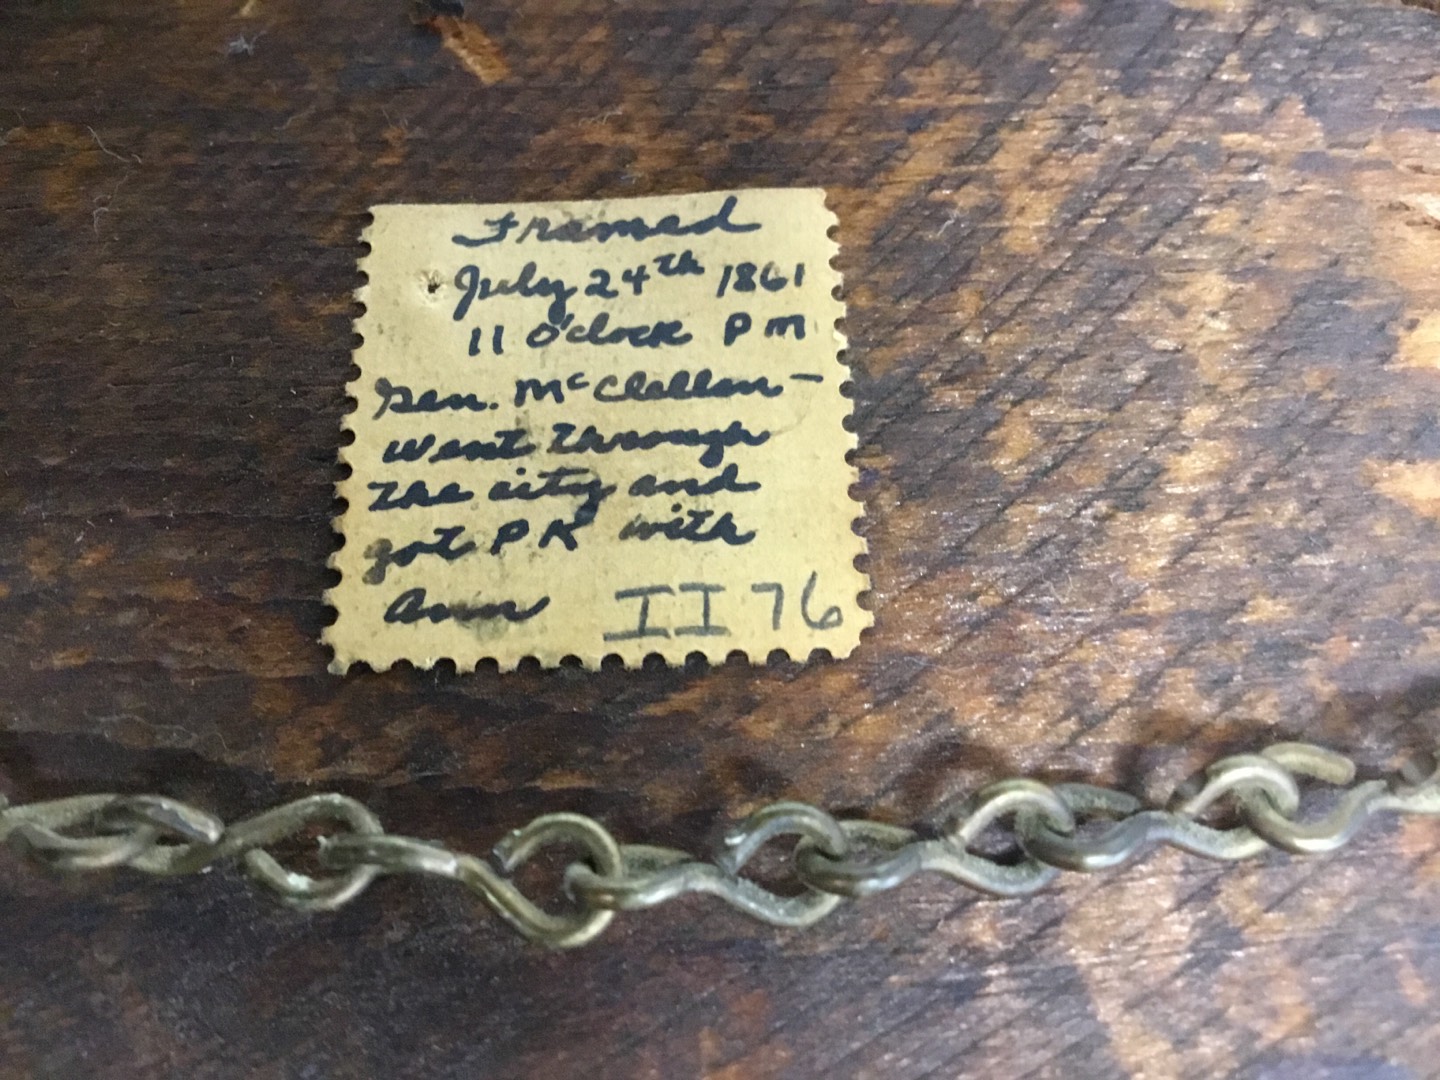 Framed
July 24th 1861
11 O'clock P M
Gen. McClellan -
went through
the city and
got P K with
Ann II 76